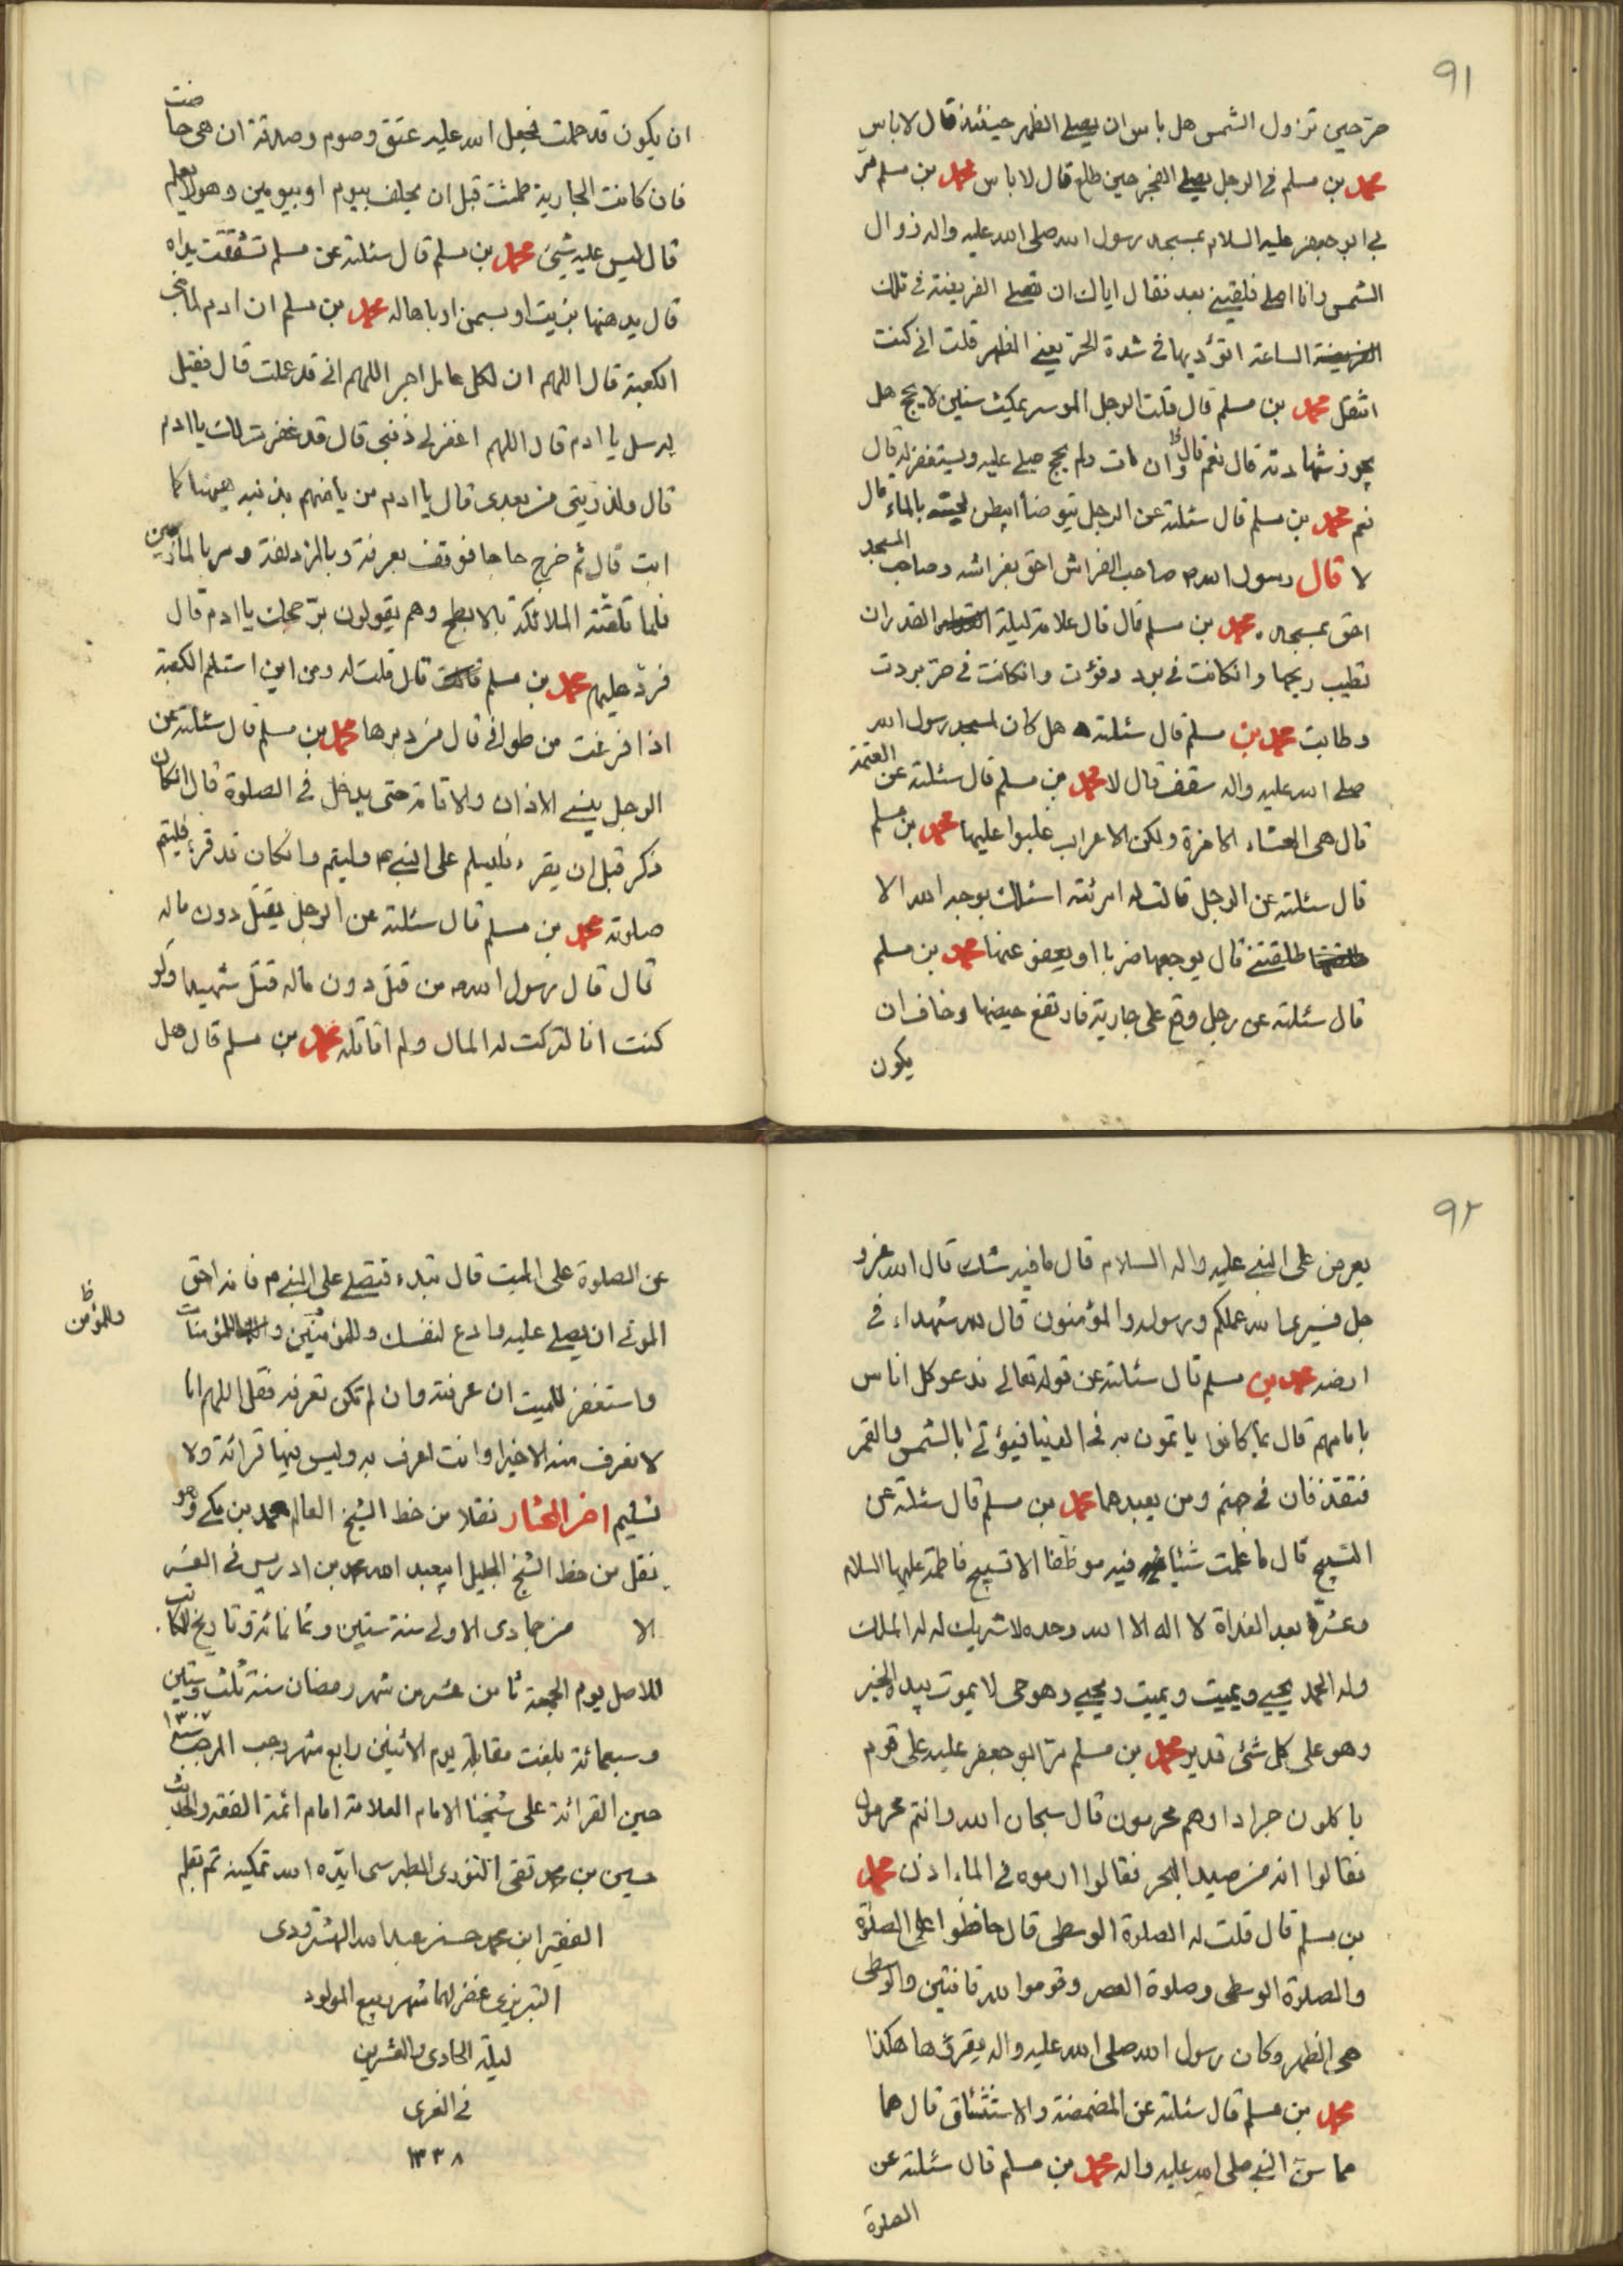 ٩١
حرّ حين تزول الشمس هل باس ان يصلي الظهر حينئذ قال لا باس
محمد بن مسلم في الرجل يصلي الفجر حين طلع قال لا باس محمد بن مسلم مرّ
بي ابو جعفر عليه السلام بمسجد رسول الله صلى الله عليه واله زوال
الشمس وانا اصلي فلقيني بعد فقال اياك ان تصلي الفريضة في تلك
الفريضة الساعة اتؤديها في شدة الحرّ يعني الظهر قلت اني كنت
اتنفل محمد بن مسلم قال قلت الرجل الموسر يمكث سنين لا يحج هل
يجوز شهادته قال نعم قال وان مات ولم يحج صلي عليه ويستغفر له قال
نعم محمد بن مسلم قال سئلته عن الرجل يتوضأ ايبطن لحيته بالماء قال
لا قال رسول الله ص صاحب الفراش احق بفراشه وصاحب المسجد
احق بمسجده محمد بن مسلم قال قال علامة ليلة القدر ان
تطيب ريحها وانكانت في برد دفؤت وانكانت في حرّ بردت
وطابت محمد بن مسلم قال سئلته هل كان لمسجد رسول الله
صلى الله عليه واله سقف قال لا محمد بن مسلم قال سئلته عن العتمة
قال هي العشاء الاخرة ولكن الاعراب غلبوا عليها محمد بن مسلم
قال سئلته عن الرجل قالت له امرئته اسئلك بوجه الله الا
طلقتني قال يوجعها ضربا او يعفو عنها محمد بن مسلم
قال سئلته عن رجل وقع على جارية فارتفع حيضها وخاف ان
يكون
ان يكون قد حملت فجعل الله عليه عتق وصوم وصدقة ان هي حاضت
فان كانت الجارية طمثت قبل ان يحلف بيوم او بيومين وهو لا يعلم
قال ليس عليه شيئ محمد بن مسلم قال سئلته عن مسلم تشققت يداه
قال يدهنها بزيت او بسمن او باهاله محمد بن مسلم ان ادم لما بنى
الكعبة قال اللهم ان لكل عامل اجر اللهم اني قد عملت قال فقيل
له سل يا ادم قال اللهم اغفر لي ذنبي قال قد غفرت لك يا ادم
قال ولذريتي من بعدي قال يا ادم من ياء منهم بذنبه هيهنا كما
ابت قال ثم خرج حاجا فوقف بعرفة وبالمزدلفة ومر بالمأزمين
فلما تلقته الملائكة بالابطح وهم يقولون برّ حجك يا ادم قال
فردّ عليهم محمد بن مسلم قال قلت له ومن اين استلم الكعبة
اذا فرغت من طوافي قال من دبرها محمد بن مسلم قال سئلته عن
الرجل ينسي الاذان والاقامة حتى يدخل في الصلوة قال انكان
ذكر قبل ان يقرء فليسلم على النبي ص وليتم وانكان قد قرء فليتم
صلوته محمد بن مسلم قال سئلته عن الرجل يقتل دون ماله
قال قال رسول الله ص من قتل دون ماله قتل شهيدا ولو
كنت انا لتركت له المال ولم اقاتله محمد بن مسلم قال هل
٩٢
يعرض على النبي عليه واله السلام قال ما فيه شك قال الله عز و
جل فسيرى الله عملكم ورسوله والمؤمنون قال لله شهداء في
ارضه محمد بن مسلم قال سئلته عن قوله تعالى ندعو كل اناس
بامامهم قال بما كانوا ياتمون به في الدنيا فيؤتى بالشمس والقمر
فتقذفان في جهنم ومن يعبدهما محمد بن مسلم قال سئلته عن
التسبيح قال ما علمت شيئا فيه موظفا الا تسبيح فاطمة عليها السلام
وعشرة بعد الغداة لا اله الا الله وحده لا شريك له له الملك
وله الحمد يحيي ويميت ويميت ويحيي وهو حي لا يموت بيده الخير
وهو على كل شئ قدير محمد بن مسلم مرّ ابو جعفر عليه على قوم
ياكلون جرادا وهم محرمون قال سبحان الله وانتم محرمون
فقالوا انه من صيد البحر فقالوا ارموه في الماء اذن محمد
بن مسلم قال قلت له الصلوة الوسطى قال حافظوا على الصلوة
والصلوة الوسطى وصلوة العصر وقوموا لله قانتين والوسطى
هي الظهر وكان رسول الله صلى الله عليه واله يقرؤها هكذا
محمد بن مسلم قال سئلته عن المضمضة والاستنثاق قال هما
مما سنّ النبي صلى الله عليه واله محمد بن مسلم قال سئلته عن
الصلوة
عن الصلوة على الميت قال تبدء فتصلي على النبي ص فانه احق
الموتى ان يصلي عليه وادع لنفسك وللمؤمنين والمؤمنات
وللمؤمن ظ
واستغفر للميت ان عرفته وان لم تكن تعرفه فقل اللهم انا
لا نعرف منه الا خيرا وانت اعرف به وليس فيها قرائة ولا
تسليم اخر المختار نقلا من خط الشيخ العالم محمد بن مكي وهو
نقل من خط الشيخ الجليل ابيعبد الله محمد بن ادريس في العشر
الا من جمادى الاولى سنة ستين وثمانمائة وتاريخ الكاتب
للاصل يوم الجمعة ثامن عشر من شهر رمضان سنة ثلث وستين
وسبعمائة بلغت مقابلة يوم الاثنين رابع شهر رجب المرجب سنه ١٣٠٧
حين القرائة على شيخنا الامام العلامة امام ائمة الفقه والحديث
حسين بن محمد تقي النوري الطبرسي ايّده الله تمكينه تم بقلم
الفقير ابن محمد حسن عبد الله الهشترودي
التبريزي غفر لهما شهر ربيع المولود
ليلة الحادي والعشرين
في الغري
١٣٣٨